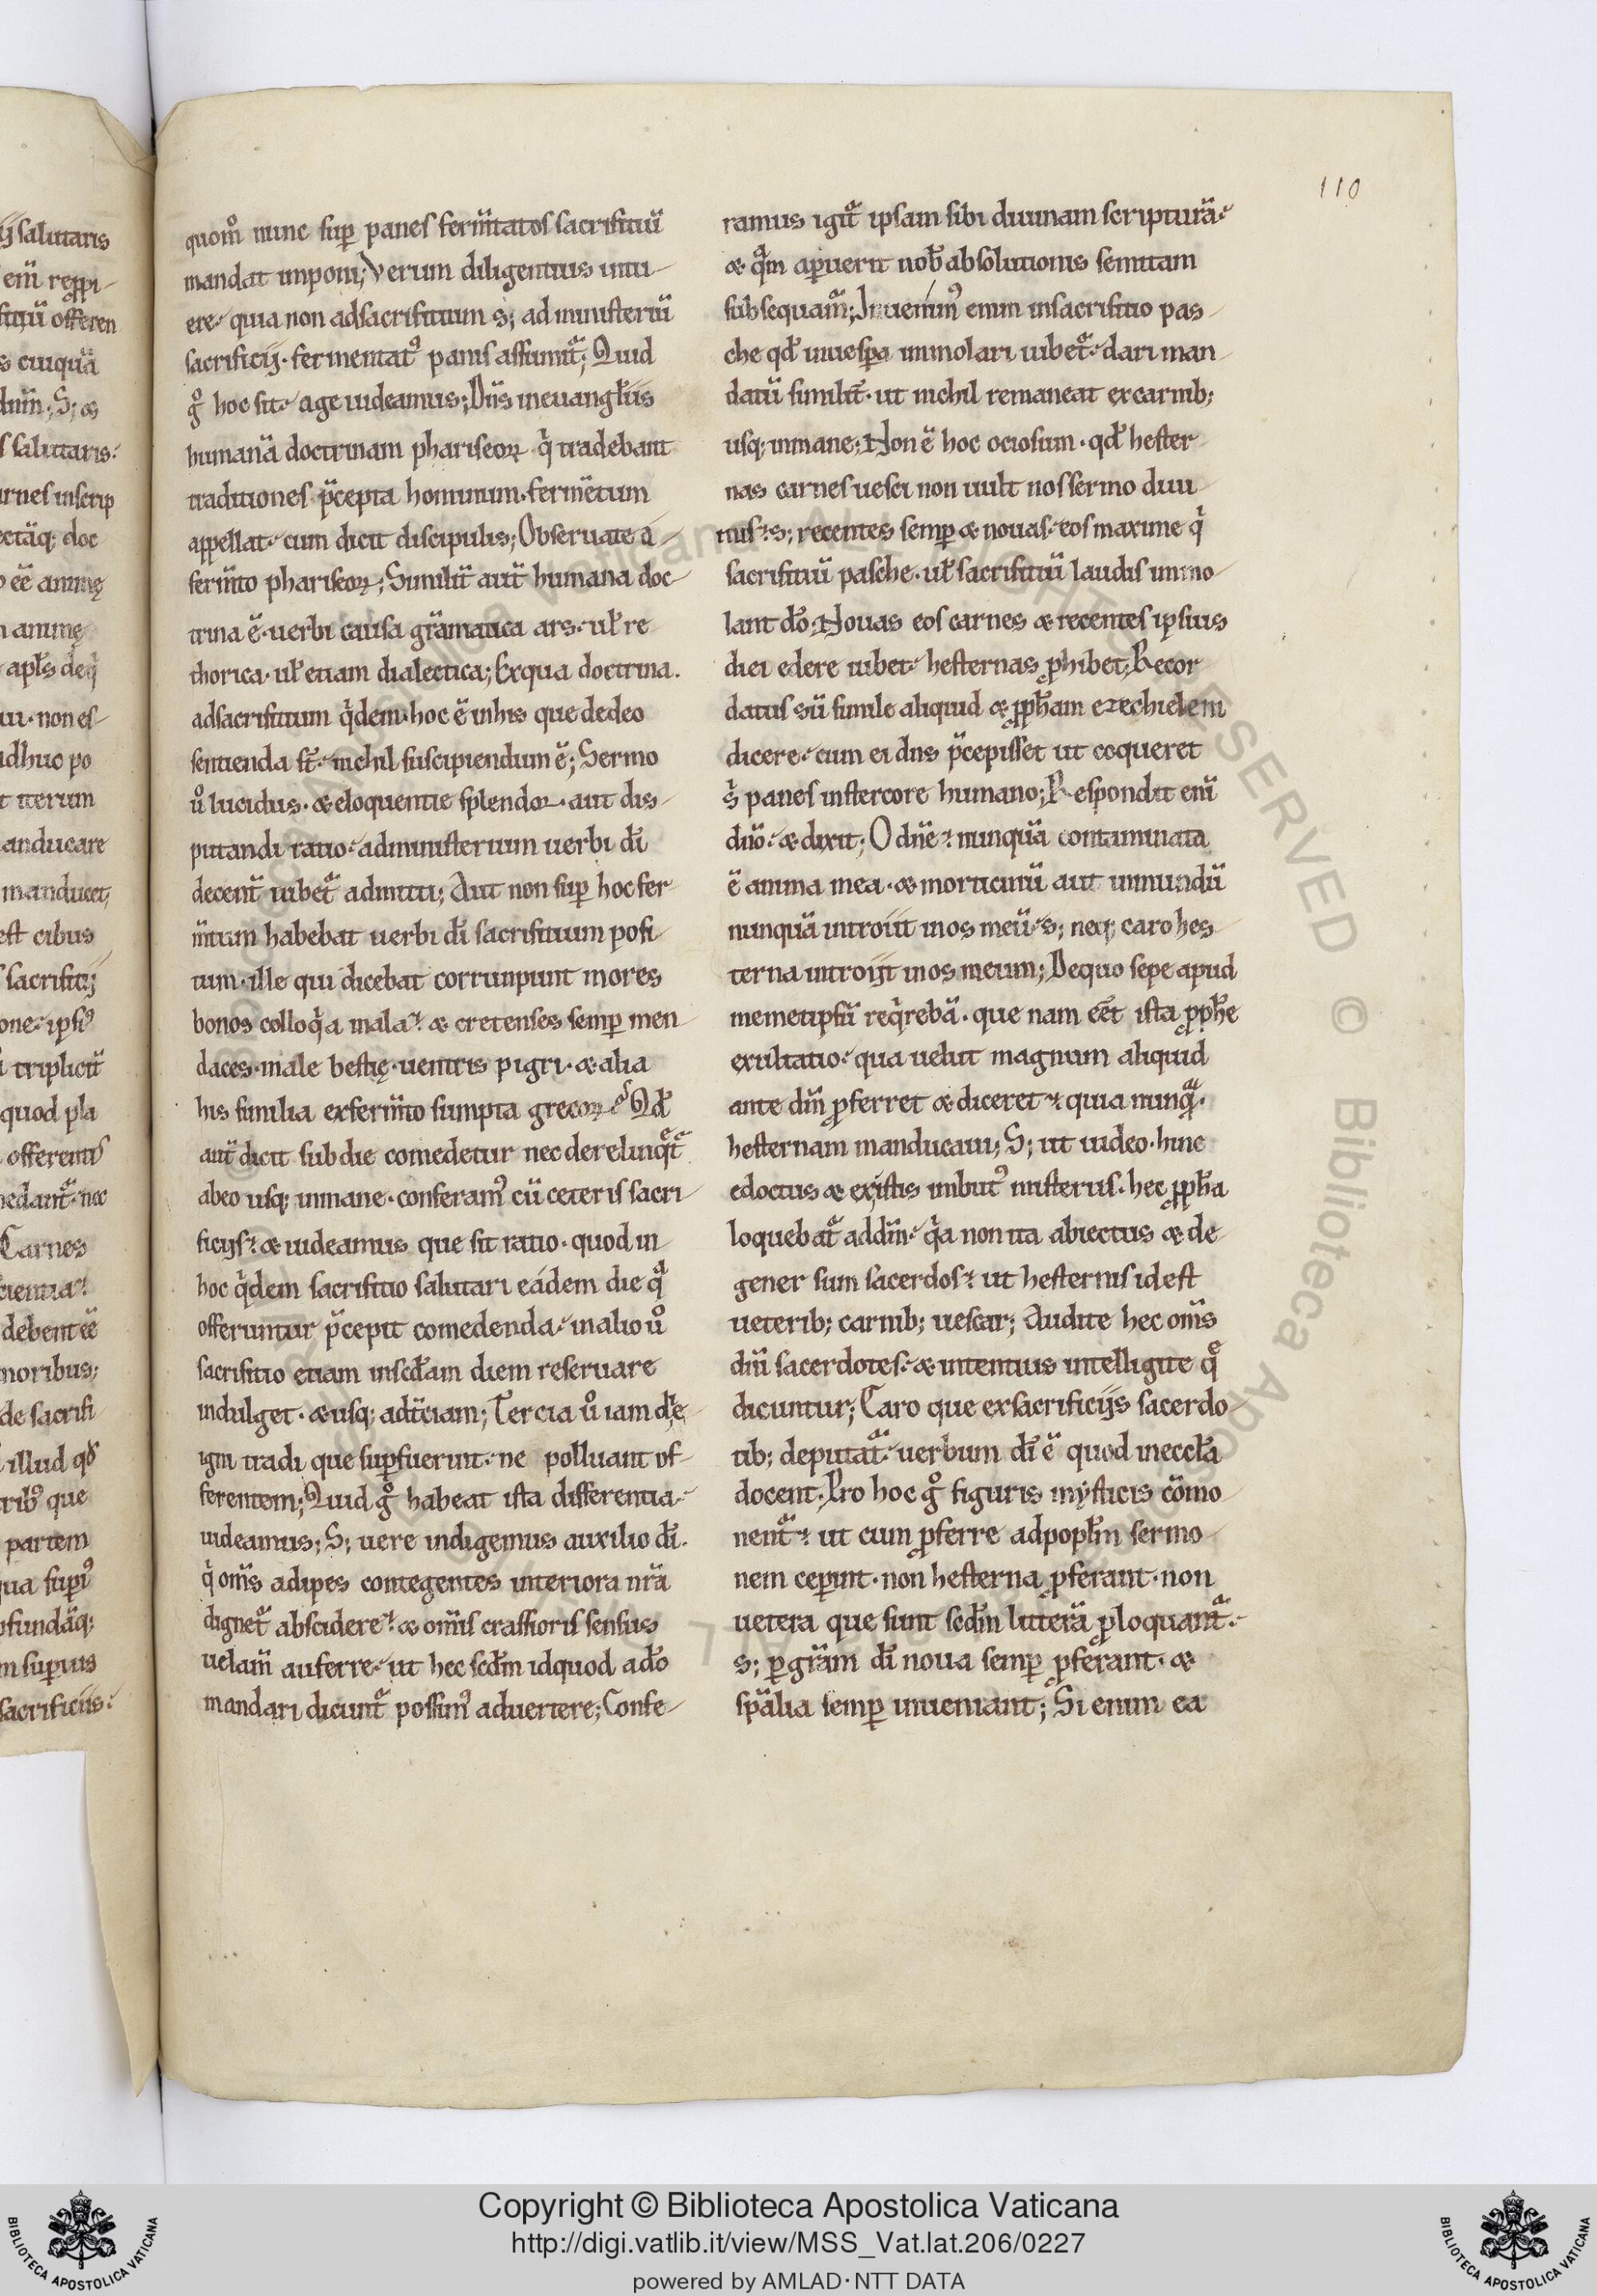 110
quom̊ nunc sup̄ panes ferm̄tatos sacrifitiū
mandat imponi; Verum diligentius intu-
ere. quia non adsacrifitium s; ad ministeriū
sacrificij. fermentat᷒ panis assumit᷒; Quid
g̊ hoc sit. age uideamus; Dn̄s ineuangl̄iis
humanā doctrinam phariseoꝝ q̇ tradebant
traditiones p̄cepta hominum. fermētum
appellat. cum dicit discipulis; Obseruate a-
ferm̄to phariseoꝝ; Similit̄ aut̄ humana doc-
trina ē. uerbi causa grāmatica ars. ul̄ re
thorica. ul̄ etiam dialectica; Exqua doctrina.
adsacrifitium q̇dem. hoc ē inhis que dedeo
sentienda st̄. nichil suscipiendum ē; Sermo
ů lucidus. & eloquentie splendor. aut dis-
putandi ratio. administerium uerbi dī
decent̄ iubet᷒ admitti; Aut non sup̄ hoc fer
m̄tum habebat uerbi dī sacrifitium posi-
tum. ille qui dicebat corrunpunt mores
bonos colloq̇a mala. & cretenses semp̄ men
daces. male bestię. uentris pigri. & alia
his similia exferm̄to sumpta grecoꝝ. Qd̄
aut̄ dicit sub die comedetur nec derelinqᷓt᷒
abeo usq; inmane. conferam᷒ cū ceteris sacri-
ficijs. & uideamus que sit ratio. quod in-
hoc q̇dem sacrifitio salutari eadem die qᷓ
offeruntur p̄cepit comedenda. inalio ů
sacrifitio etiam inscd̄am diem reseruare
indulget. & usq; adt̄ciam; Tercia ů iam die
igni tradi que sup̄fuerint. ne polluant of-
ferentem; Quid g̊ habeat ista differentia.
uideamus; S; uere indigemus auxilio dī.
q̇ om̄s adipes contegentes interiora nr̄a
dignet᷒ abscidere. & om̄is crassioris sensus
uelam̄ auferre. ut hec scd̄m idquod ado
mandari dicunt᷒ possim᷒ aduertere; Confe-
ramus igit᷒ ipsam sibi diuinam scripturā.
& qᷓm ap̄uerit nob̄ absolutionis semitam
subsequam᷒; Inuenim᷒ enim insacrifitio pas-
che qd̄ inuesp̄a immolari iubet᷒. dari man-
datū similit̄. ut nichil remaneat excarnib;
usq; inmane; Non ē hoc ociosum. qd̄ hester-
nas carnes uesci non uult nos sermo diui
nus. s; recentes semp̄ & nouas. eos maxime q̇
sacrifitiū pasche. ul̄ sacrifitiū laudis immo-
lant dō; Nouas eos carnes & recentes ipsius
diei edere iubet. hesternas ꝓhibet; Recor
datus sū simile aliquid & ꝓph̄am ezechielem
dicere. cum ei dns p̄cepisset ut coqueret
s̄ panes instercore humano; Respondit enī
dn̄o. & dixit; O dn̄e. nunquā contaminata
ē anima mea. & morticinū aut inmundū
nunquā introiit inos meū. s; neq; caro hes-
terna introijt inos meum; Dequo sepe apud
memetipsū req̇rebā. que nam eēt ista ꝓph̄e
exultatio. qua uelut magnum aliquid
ante dnm̄ ꝓferret & diceret. quia nunqᷓ.
hesternam manducaui; S; ut uideo. hinc
edoctus & existis inbut᷒ misteriis. hec ꝓph̄a
loquebat᷒ addn̄m. q̇a non ita abiectus & de-
gener sum sacerdos. ut hesternis id est
ueterib; carnib; uescar; Audite hec om̄s
dnī sacerdotes. & intentius intelligite q̊
dicuntur; Caro que exsacrificijs sacerdo-
tib; deputat᷒. uerbum dī ē quod ineccl̄a
docent. Pro hoc g̊ figuris mysticis cōmo-
nent᷒. ut cum ꝓferre adpopl̄m sermo-
nem cep̄int. non hesterna ꝓferant. non
uetera que sunt scd̄m litterā ꝓloquant᷒.
s; ꝑ grām dī noua semp̄ ꝓferant. &
spālia semp̄ inueniant; Si enim ea
Copyright © Biblioteca Apostolica Vaticana
http://digi.vatlib.it/view/MSS_Vat.lat.206/0227
powered by AMLAD·NTT DATA
BIBLIOTECA APOSTOLICA VATICANA
BIBLIOTECA APOSTOLICA VATICANA